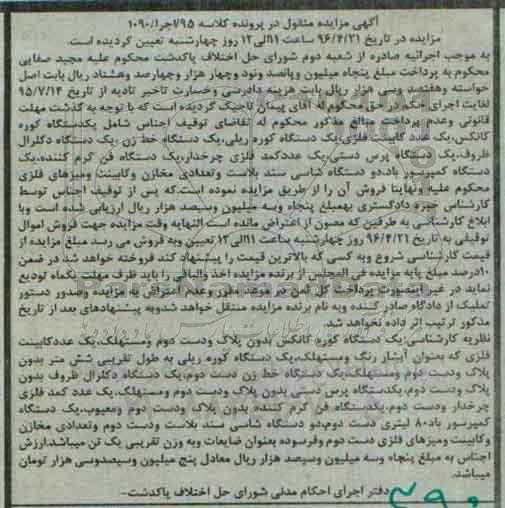 آگهی مزایده منقول در پرونده کلاسه ۷۹۵/اجرا/۱۰۹۰
مزایده در تاریخ ۹۶/۴/۲۱ ساعت ۱۱الی۱۲ روز چهارشنبه تعیین گردیده است.
به موجب اجرائیه صادره از شعبه دوم شورای حل اختلاف پاکدشت محکوم علیه مجید صفایی
محکوم به پرداخت مبلغ پنجاه میلیون وپانصد ونود وچهار هزار وچهارصد وهشتاد ریال بابت اصل
خواسته وهفتصد وسی هزار ریال بابت هزینه دادرسی وخسارت تاخیر تادیه از تاریخ ۹۵/۷/۱۴
لغایت اجرای حکم در حق محکوم له آقای پیمان تاجیک گردیده است که با توجه به گذشت مهلت
قانونی وعدم پرداخت مبالغ مذکور محکوم له تقاضای توقیف اجناس شامل یکدستگاه کوره
کانکس،یک عدد کابینت فلزی،یک دستگاه کوره ریلی،یک دستگاه خط زن ،یک دستگاه دکلرال
ظروف،یک دستگاه پرس دستی،یک عددکمد فلزی چرخدار،یک دستگاه فن گرم کننده،یک
دستگاه کمپرسور باد،دو دستگاه شاسی سند بلاست وتعدادی مخازن وکابینت ومیزهای فلزی
محکوم علیه ونهایتا فروش آن را از طریق مزایده نموده است.که پس از توقیف اجناس توسط
کارشناس خبره دادگستری بهمبلغ پنجاه وسه میلیون وسیصد هزار ریال ارزیابی شده است وبا
ابلاغ کارشناسی به طرفین که مصون از اعتراض مانده است النهایه وقت مزایده جهت فروش اموال
توقیفی به تاریخ ۹۶/۴/۲۱ روز چهارشنبه ساعت ۱۱الی۱۲ تعیین وبه فروش می رسد مبلغ مزایده از
قیمت کارشناسی شروع وبه کسی که بالاترین قیمت را پیشنهاد کند فروخته خواهد شد در ضمن
۱۰درصد مبلغ پایه مزایده فی المجلس از برنده مزایده اخذ والباقی را باید ظرف مهلت یکماه تودیع
نماید در غیر اینصورت پرداخت کل ثمن در موعد مقرر وعدم اعتراض به مزایده وصدور دستور
تملیک از دادگاه صادر کننده وبه نام برنده مزایده منتقل خواهد شدوبه پیشنهادهای بعد از تاریخ
مذکور ترتیب اثر داده نخواهد شد.
نظریه کارشناسی:یک دستگاه کوره کانکس بدون پلاک ودست دوم ومستهلک،یک عددکابینت
فلزی که بعنوان آبشار رنگ ومستهلک،یک دستگاه کوره ریلی به طول تقریبی شش متر بدون
پلاک ودست دوم ومستهلک،یک دستگاه خط زن دست دوم،یک دستگاه دکلرال ظروف بدون
پلاک ودست دوم،یکدستگاه پرس دستی بدون پلاک ودست دوم ومستهلک،یک عدد کمد فلزی
چرخدار ودست دوم،یکدستگاه فن گرم کننده بدون پلاک ودست دوم ومعیوب،یک دستگاه
کمپرسور باد۸۰ لیتری دست دوم،دو دستگاه شاسی سند بلاست ودست دوم وتعدادی مخازن
وکابینت ومیزهای فلزی دست دوم وفرسوده بعنوان ضایعات وبه وزن تقریبی یک تن میباشد.ارزش
اجناس به مبلغ پنجاه وسه میلیون وسیصد هزار ریال معادل پنج میلیون وسیصدوسی هزار تومان
میباشد.
دفتر اجرای احکام مدنی شورای حل اختلاف پاکدشت-